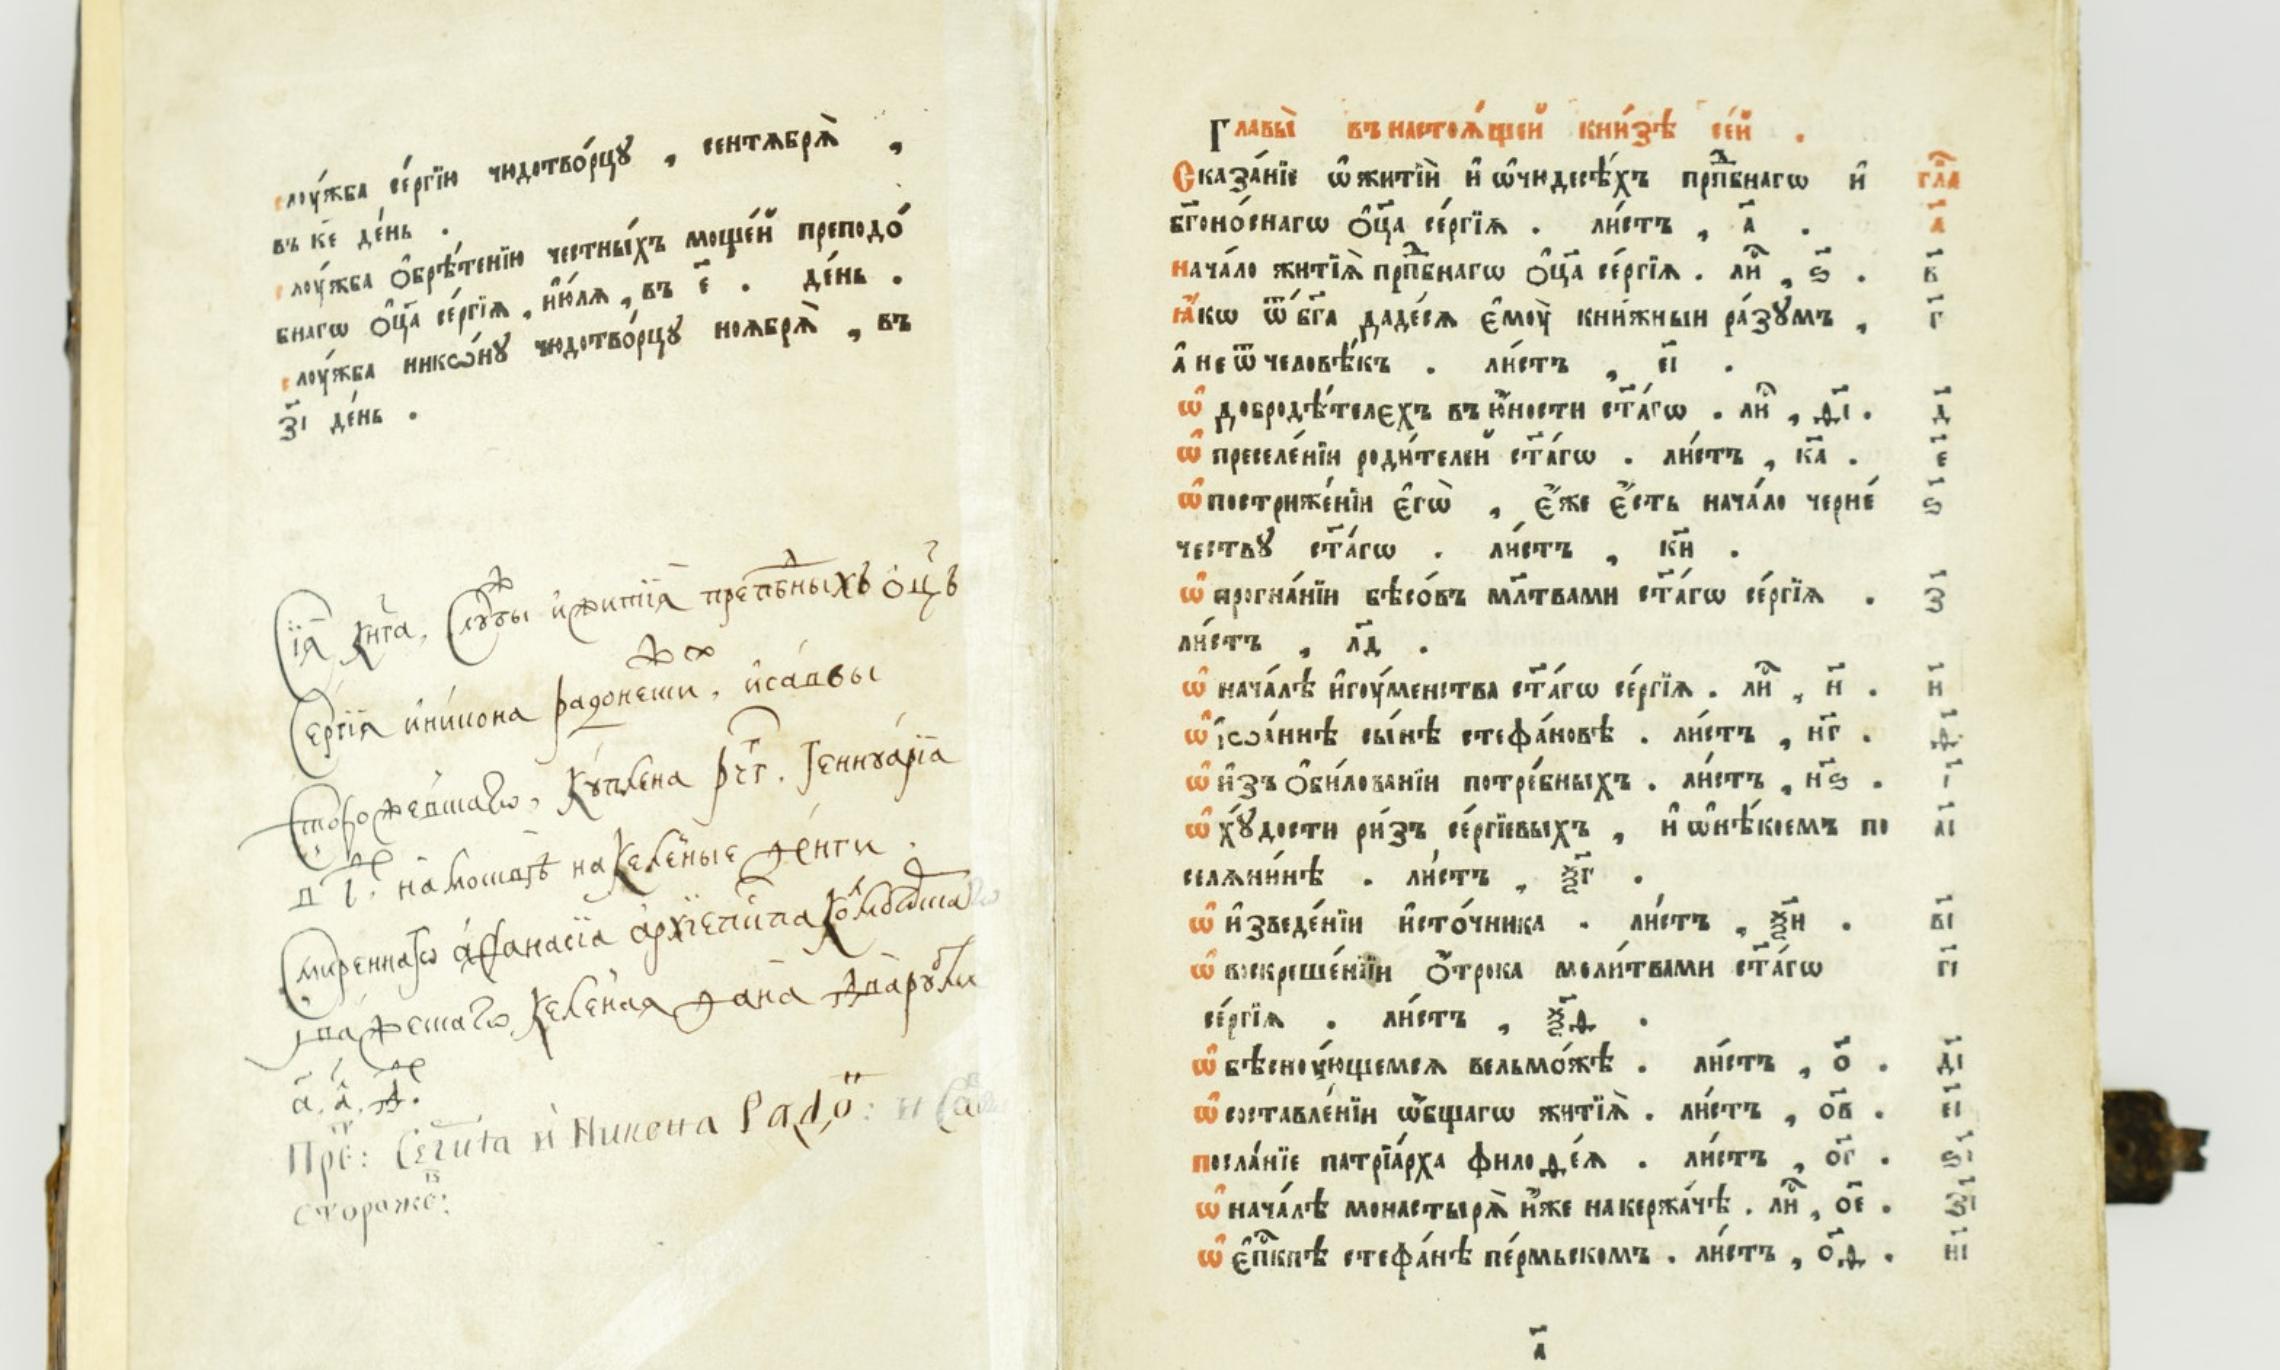 слоу́жба се́ргїю чюдотво́рцꙋ , сентѧбрѧ̀ ,
въ к҃е де́нь .
слоу́жба ѻ҆брѣ́тенїю честны́хъ моще́й преподо́
бнагѡ ѻ҆ц҃а̀ се́ргїѧ , і҆ю́лѧ , въ е҃ . де́нь .
слоу́жба никѡ́нꙋ чюдотво́рцꙋ ноѧбрѧ̀ , въ
з҃і де́нь .
Сїѧ̀ кн҃га, и҆ житїѧ̀ преп҃бныхъ ѻ҆ц҃ъ
Се́ргїѧ и҆ ни́кона радонеж, и҆ са́ввы
сторожевшагѡ, кꙋ́плена рч҃г. Генꙋа́рїа
на келе́ные де́нги .
Смиреннагѡ а҆ѳанасїа а҆рхїепи́па
келе́наѧ дана̀
Пре: Сегиѧ и Никона Радо: и Са
стороже:
Главы̀ въ настоѧ́щей кни́зѣ се́й .
Сказа́нїе ѡ҆ житїѝ и҆ ѡ҆ чюдесѣ́хъ прпⷣбнагѡ и҆ гл҃а
бг҃оно́снагѡ ѻ҆ц҃а̀ се́ргїѧ . ли́стъ , а҃ . а҃
нача́ло житїѧ̀ прпⷣбнагѡ ѻ҆ц҃а̀ се́ргїѧ . лиⷭ , ѕ҃ . в҃
ꙗ҆́кѡ ѿ бг҃а даде́сѧ є҆моу̀ кни́жныи ра́зꙋмъ , г҃
а҆ не ѿ человѣ́къ . ли́стъ , е҃і .
ѡ҆ добродѣ́телєхъ въ ю҆́ности ст҃а́гѡ . лиⷭ , ѳ҃і . д҃
ѡ҆ преселе́нїи роди́телей ст҃а́гѡ . ли́стъ , к҃а . е҃
ѡ҆ постриже́нїи є҆гѡ̀ , є҆́же є҆́сть нача́ло черне́ ѕ҃
чествꙋ ст҃а́гѡ . ли́стъ , к҃и .
ѡ҆ прогна́нїи бѣсо́въ мл҃твами ст҃а́гѡ се́ргїѧ . з҃
ли́стъ , л҃д .
ѡ҆ нача́лѣ и҆гоу́менства ст҃а́гѡ се́ргїѧ . лиⷭ , н҃ . и҃
ѡ҆ і҆ѡа́ннѣ сы́нѣ стефа́новѣ . ли́стъ , н҃г . ѳ҃
ѡ҆ и҆зъ ѻ҆би́лованїи потре́бныхъ . ли́стъ , н҃ѕ . і҃
ѡ҆ хꙋ́дости ри́зъ се́ргїевыхъ , и҆ ѡ҆ нѣ́коемъ по а҃і
селѧни́нѣ . ли́стъ , ѯ҃г .
ѡ҆ и҆зведе́нїи и҆сто́чника . ли́стъ , ѯ҃и . в҃і
ѡ҆ воскреше́нїи ѻ҆́трока моли́твами ст҃а́гѡ г҃і
се́ргїѧ . ли́стъ , ѯ҃ѳ .
ѡ҆ бѣсноу́ющемсѧ вельмо́жѣ . ли́стъ , о҃ . д҃і
ѡ҆ составле́нїи ѻ҆́бщагѡ житїѧ̀ . ли́стъ , о҃в . е҃і
посла́нїе патрїа́рха филоѳе́ѧ . ли́стъ , о҃г . ѕ҃і
ѡ҆ нача́лѣ монастырѧ̀ и҆́же на кержа́чѣ . лиⷭ , о҃е . з҃і
ѡ҆ є҆пⷭкпѣ стефа́нѣ пе́рмьскомъ . ли́стъ , о҃ѳ . и҃і
а҃